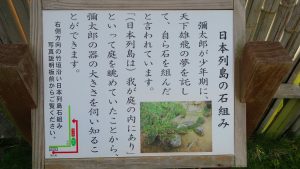 日本列島の石組み
彌太郎が少年期に、
天下雄飛の夢を託し
て、自ら石を組んだ
と言われています。
「日本列島は、我が庭の内にあり」
といって庭を眺めていたことから、
彌太郎の器の大きさを伺い知るこ
とができます。
右側方向の竹垣沿い日本列島石組み
写真説明板前からご覧ください。